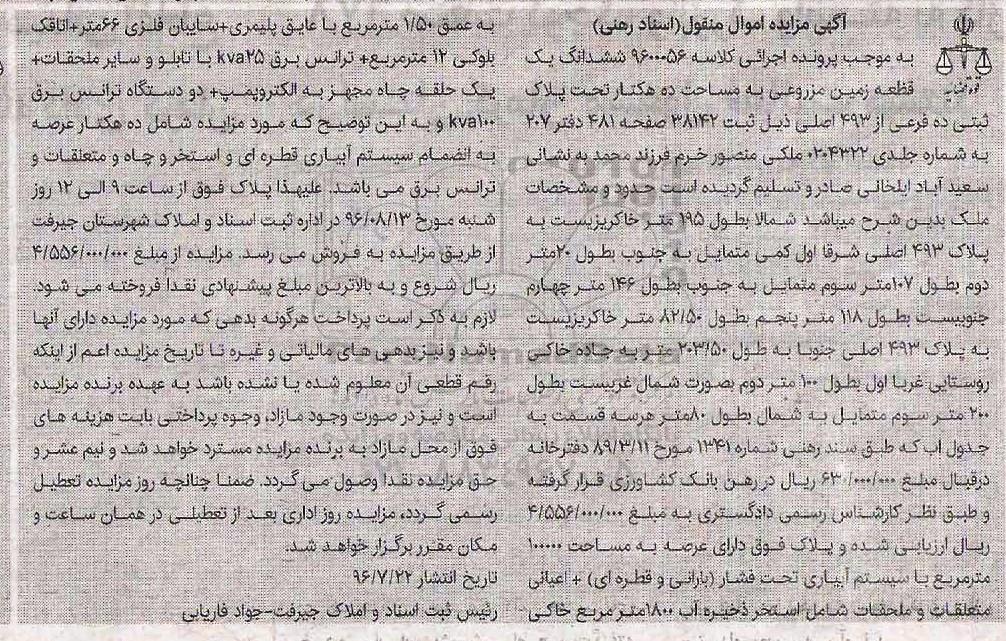 آگهی مزایده اموال منقول (اسناد رهنی)
به موجب پرونده اجرائی کلاسه ۹۶۰۰۰۵۶ ششدانگ یک
قطعه زمین مزروعی به مساحت ده هکتار تحت پلاک
ثبتی ده فرعی از ۴۹۳ اصلی ذیل ثبت ۳۸۱۴۲ صفحه ۴۸۱ دفتر ۲۰۷
به شماره جلدی ۰۲۰۴۳۲۲ ملکی منصور خرم فرزند محمد به نشانی
سعید آباد ایلخانی صادر و تسلیم گردیده است حدود و مشخصات
ملک بدین شرح میباشد شمالا بطول ۱۹۵ متر خاکریزیست به
پلاک ۴۹۳ اصلی شرقا اول کمی متمایل به جنوب بطول ۲۰متر
دوم بطول ۱۰۷متر سوم متمایل به جنوب بطول ۱۴۶ متر چهارم
جنوبیست بطول ۱۱۸ متر پنجم بطول ۸۲/۵۰ متر خاکریزیست
به پلاک ۴۹۳ اصلی جنوبا به طول ۲۰۳/۵۰ متر به جاده خاکی
روستایی غربا اول بطول ۱۰۰ متر دوم بصورت شمال غربیست بطول
۲۰۰ متر سوم متمایل به شمال بطول ۸۰متر هرسه قسمت به
جدول اب که طبق سند رهنی شماره ۱۳۴۱ مورخ ۸۹/۳/۱۱ دفترخانه
درقبال مبلغ ۶۳۰/۰۰۰/۰۰۰ ریال در رهن بانک کشاورزی قرار گرفته
و طبق نظر کارشناس رسمی دادگستری به مبلغ ۴/۵۵۶/۰۰۰/۰۰۰
ریال ارزیابی شده و پلاک فوق دارای عرصه به مساحت ۱۰۰۰۰۰
مترمربع با سیستم آبیاری تحت فشار (بارانی و قطره ای) + اعیانی
متعلقات و ملحقات شامل استخر ذخیره آب ۱۸۰۰متر مربع خاکی
به عمق ۱/۵۰ مترمربع با عایق پلیمری+سایبان فلزی ۶۶متر+اتاقک
بلوکی ۱۲ مترمربع+ ترانس برق kva۲۵ با تابلو و سایر ملحقات+
یک حلقه چاه مجهز به الکتروپمپ+ دو دستگاه ترانس برق
kva۱۰۰ و به این توضیح که مورد مزایده شامل ده هکتار عرصه
به انضمام سیستم آبیاری قطره ای و استخر و چاه و متعلقات و
ترانس برق می باشد. علیهذا پلاک فوق از ساعت ۹ الی ۱۲ روز
شنبه مورخ ۹۶/۰۸/۱۳ در اداره ثبت اسناد و املاک شهرستان جیرفت
از طریق مزایده به فروش می رسد. مزایده از مبلغ ۴/۵۵۶/۰۰۰/۰۰۰
ریال شروع و به بالاترین مبلغ پیشنهادی نقدا فروخته می شود.
لازم به ذکر است پرداخت هرگونه بدهی که مورد مزایده دارای آنها
باشد و نیز بدهی های مالیاتی و غیره تا تاریخ مزایده اعم از اینکه
رقم قطعی آن معلوم شده یا نشده باشد به عهده برنده مزایده
است و نیز در صورت وجود مازاد، وجوه پرداختی بابت هزینه های
فوق از محل مازاد به برنده مزایده مسترد خواهد شد و نیم عشر و
حق مزایده نقدا وصول می گردد. ضمنا چنانچه روز مزایده تعطیل
رسمی گردد، مزایده روز اداری بعد از تعطیلی در همان ساعت و
مکان مقرر برگزار خواهد شد.
تاریخ انتشار ۹۶/۷/۲۲
رئیس ثبت اسناد و املاک جیرفت-جواد فاریابی